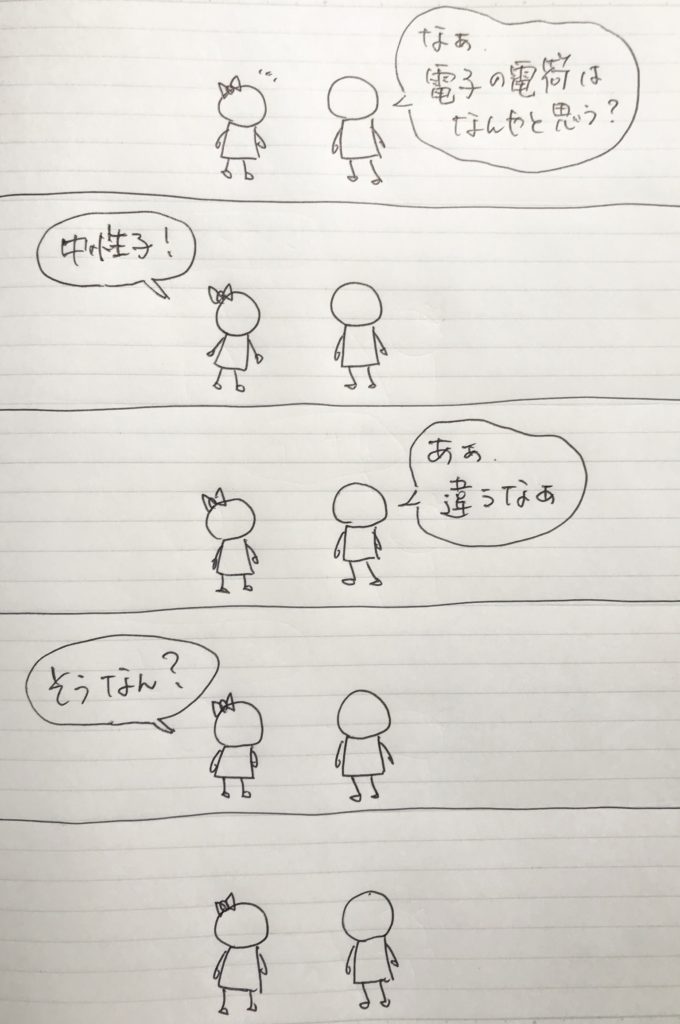 なぁ.
電子の電荷は
なんやと思う?
中性子!
あぁ.
違うなぁ
そうなん?